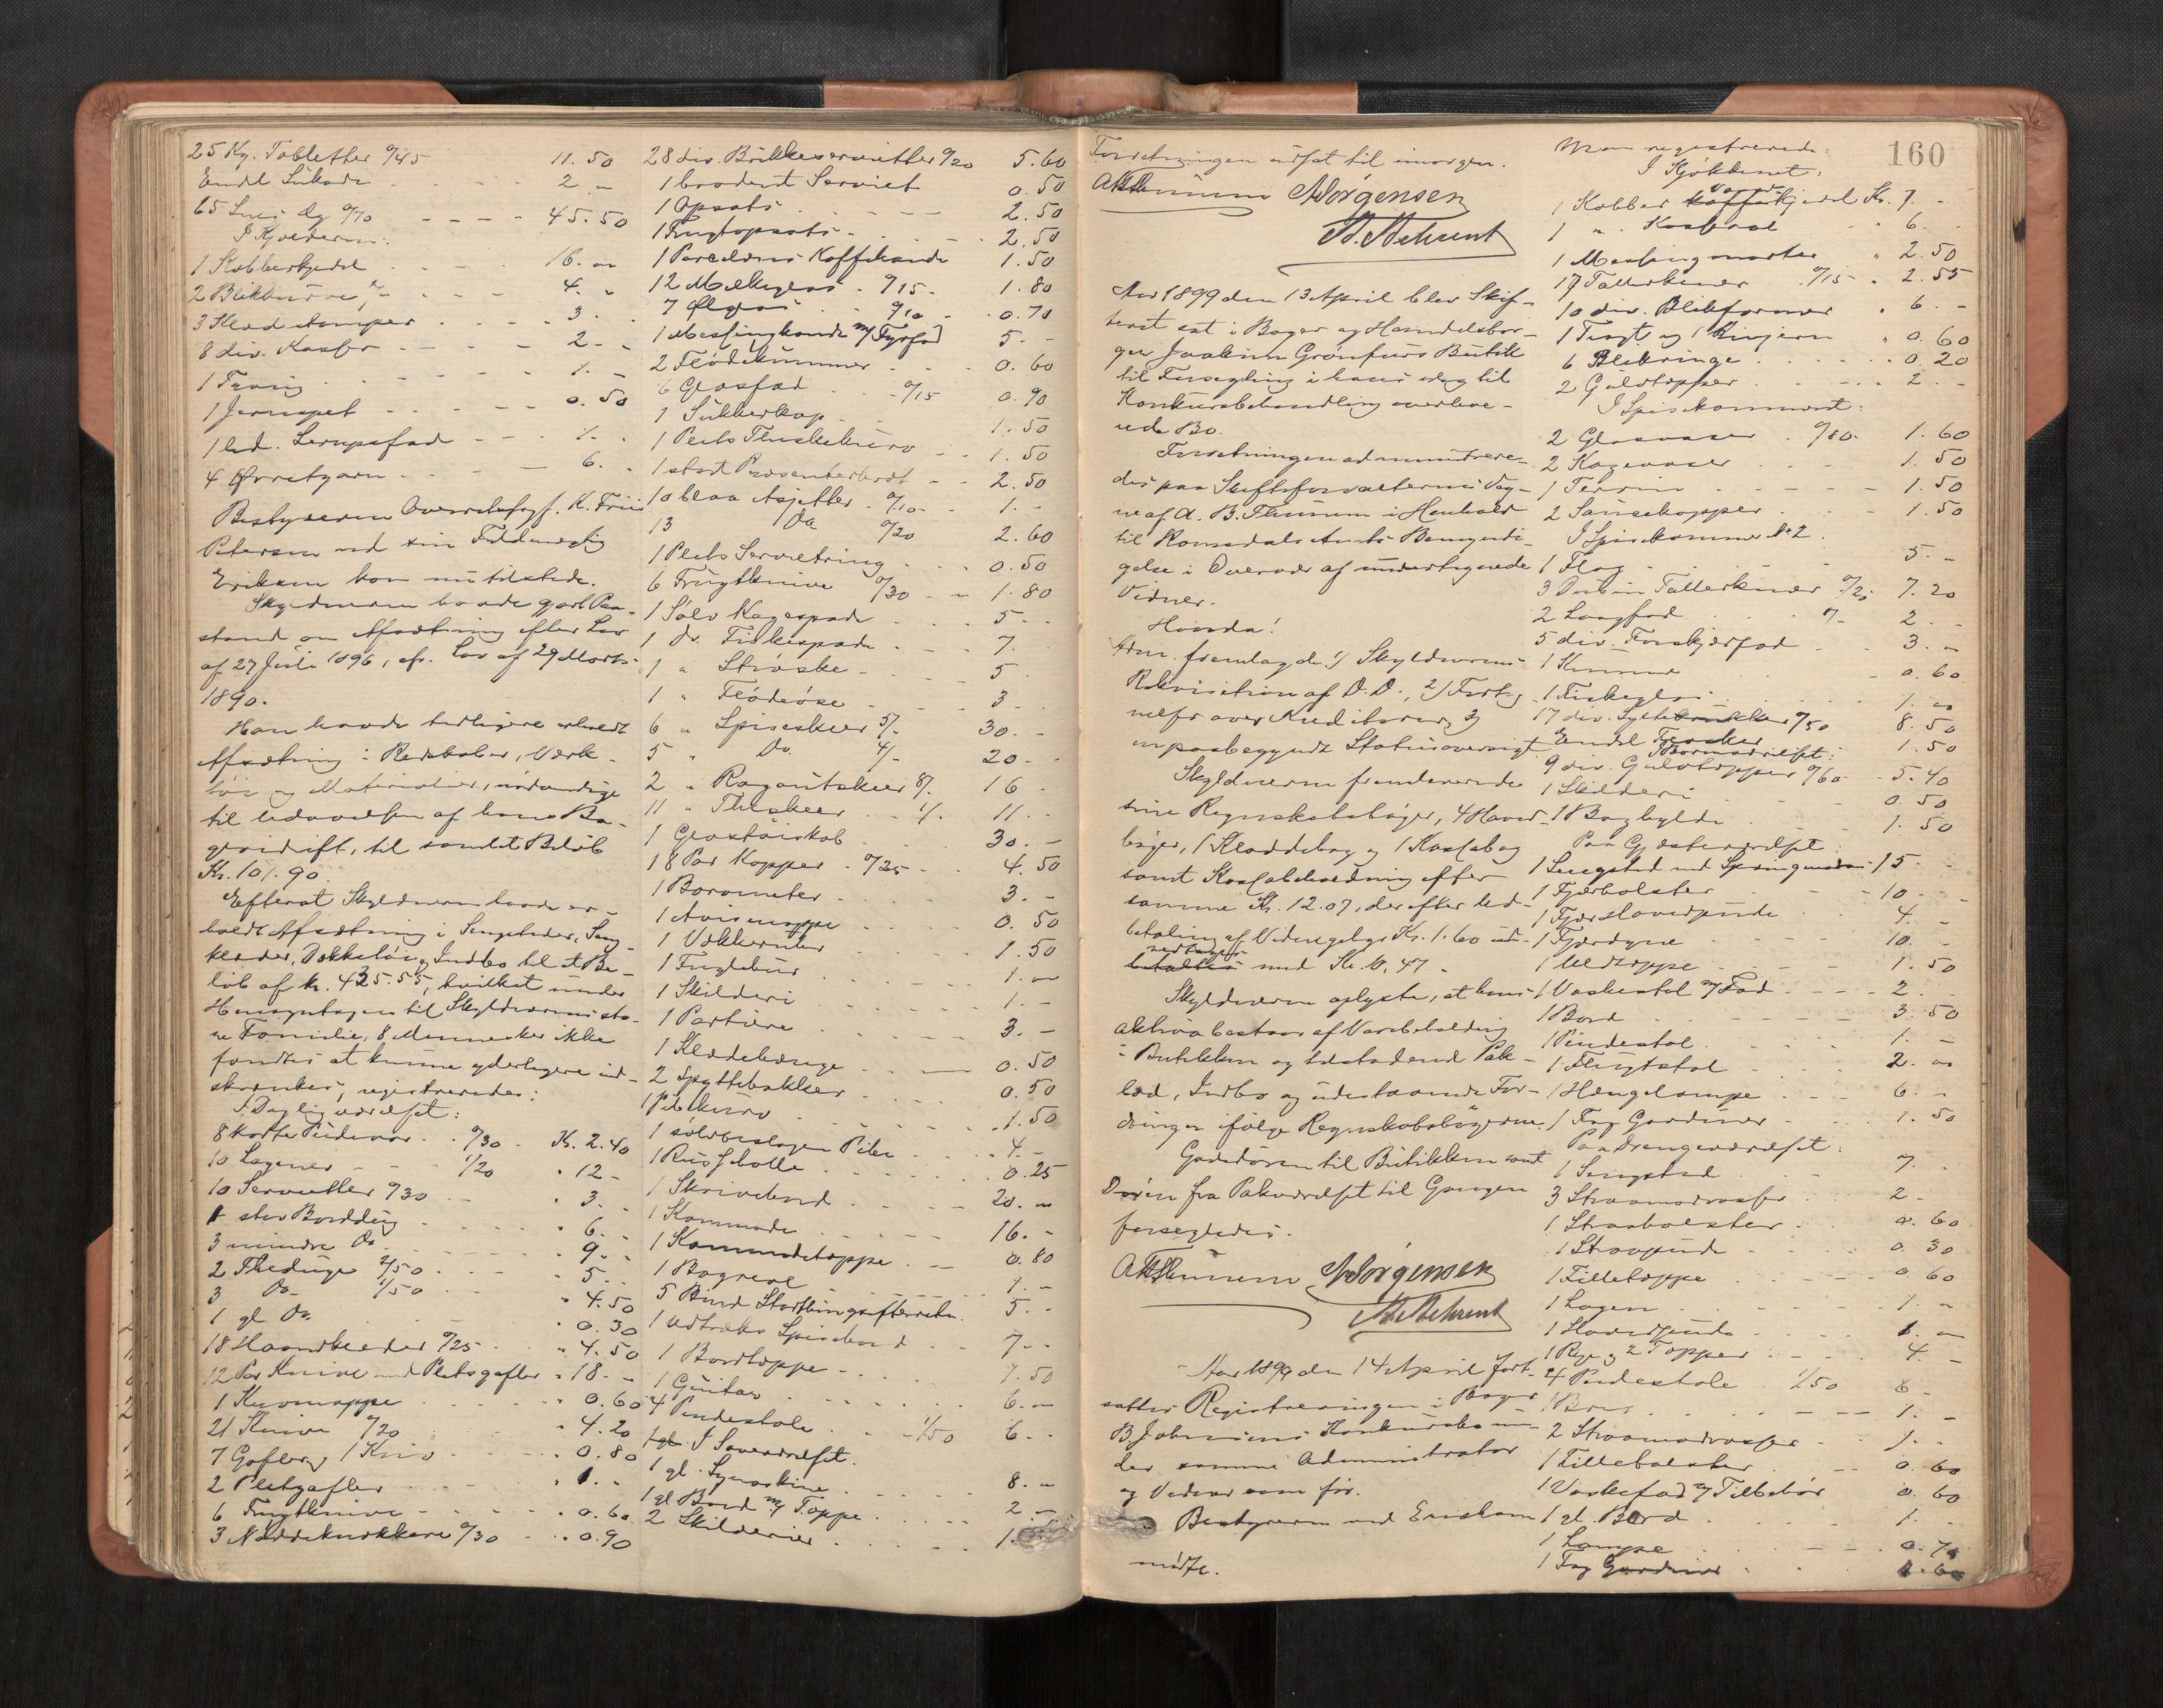 25 Kg. Tabletter 0/45 11.50
Endel Sukade 2 "
65 Snes Æg 0/70 45.50
I Kjælderen:
1 Kobberkjedel 16. "
2 Blikbøtter 4. "
3 Sladdamper 3. "
8 div. Kasser 2. "
1 Traug 1. "
1 Jernspet 0.50
1 led. Serupsfad 1. "
4 Ørretgarn 6. "
Bestyreren Overretssagf. K. Friis
Petersen ved sin Fuldmægtig
Eriksen kom nu tilstede.
Skyldneren havde gjort Paa-
stand om Afsætning efter Lov
af 27 Juli 1896, cfr. Lov af 29 Marts
1890.
Han havde tidligere erholdt
Afsætning i Redskaber, Værk-
tøi og Materialier, nødvendige
til Udøvelsen af hans Ba-
geridrift, til samlet Beløb
Kr. 101.90.
Efterat Skyldneren havde er-
holdt Afsætning i Sengesteder, Seng-
klæder, Dækketøi og Indbo til et Be-
løb af Kr. 425.55, hvilket under
Hensyntagen til Skyldnerens sto-
re Familie, 8 Mennesker ikke
fandtes at kunne yderligere ind-
skrænkes, registreredes:
I Dagligværelset:
8 korte Pudevar 0/30 Kr. 2.40
10 Lagener 1/20 " 12 -
10 Servietter 0/30 " 3. -
1 stor Borddug " 6. -
3 mindre Do. " 9. -
2 Theduge 2/50 " 5. -
3 Do. 1/50 " 4.50
1 gl. Do. " 0.30
18 Haandklæder 0/25 " 4.50
12 Par Knive med Pletsgafler " 18. -
1 Knivmappe " 0.60
21 Knive 0/20 " 4.20
7 Gafler og 1 Kniv " 0.80
2 Pletgafler " 1. -
6 Frugtknive " 0.60
3 Nøddeknækkere 0/30 " 0.90
28 div. Brikkeservietter 0/20 5.60
1 broderet Serviet 0.50
1 Opsats 2.50
1 Frugtopsats 2.50
1 Porcelæns Kaffekande 1.50
12 Melkeglas 0/15 1.80
7 Ølglas 0/10 0.70
1 Messingkande m/ Fyrfad 5. -
2 Flødekummer 0.60
6 Glasfad 0/15 0.90
1 Sukkerkop 1.50
1 Plets Flaskekurv 1.50
1 stort Præsenterbret 2.50
10 blaa Asjetter 0/10 1. -
13 Do. 0/20 2.60
1 Plets Servietring 0.50
6 Frugtknive 0/30 1.80
1 Sølv Kagespade 5. -
1 do. Fiskespade 7.
1 " Strøske 5
1 " Flødeøse 3
6 " Spiseskeer 5/- 30. -
5 " Do. 4/- 20. -
2 " Ragoutskeer 8/- 16
11 " Theskeer 1/- 11. -
1 Glastøiskab 30. -
18 Par Kopper 0/25 4.50
1 Barometer 3. -
1 Avismappe 0.50
1 Vækkerur 1.50
1 Fuglebur 1. -
1 Skilderi 1. -
1 Portiere 3. -
1 Klædehænge 0.50
2 Spyttebakker 0.50
1 Pibekurv 1.50
1 sølvbeslagen Pibe 4. -
1 Punschbolle 0.25
1 Skrivebord 20. -
1 Kommode 16. -
1 Kommodetæppe 0.80
1 Bogreol 1. -
5 Bind Storthingsefterretn. 5. -
1 Udtræks Spisebord 7. -
1 Bordtæppe 7.50
1 Guitar 6. -
4 Pindestole 1/50 6. -
I Soveværelset.
1 gl. Symaskine 8. -
1 gl. Bord m/ Tæppe 2. -
2 Skilderier 1.
Forretningen udsat til imorgen.
A B Thunem N Jørgensen
Aar 1899 den 13 April blev Skif-
teret sat i Bager og Handelsbor-
ger Joakim Grønfurs Butik
til Forsegling i hans idag til
Konkursbehandling overleve-
rede Bo.
Forretningen administrere-
des paa Skifteforvalterens Veg-
ne af A. B. Thunem i Henhold
til Romsdals Amts Bemyndi-
gelse i Overvær af undertegnede
Vidner.
Hvorda!
Adm. fremlagde 1) Skyldnerens
Rekvisition af D.D., 2) Forteg-
nelse over Kreditorer, 3)
en paabegyndt Statusoversigt
Skyldneren fremleverede
sine Regnskabsbøger, 4 Hoved-
bøger, 1 Kladdebog og 1 Kassabog
samt Kassabeholdning efter
samme Kr. 12.07, der efter Ud-
betaling af Vidnegebyr Kr. 1.60 ud-
betaltes med Kr. 10.47.
Skyldneren oplyste, at hans
aktiva bestaar af Varebeholdning
i Butikken og tilstødende Pak-
bod, Indbo og udestaaende For-
dringer ifølge Regnskabsbøgerne.
Gadedøren til Butikken samt
Døren fra Pakværelset til Gangen
forsegledes.
A B Thunem N Jørgensen
Aar 1899 den 14 April fort-
sattes Registreringen i Bager
B. Johnsens Konkursbo un-
der samme Administrator
og Vidner som før.
Bestyreren ved Eriksen
mødte.
160
Man registrerede:
I Kjøkkenet:
1 Kobber Kaffekjedel Kr. 7. -
1 " Kasserol " 6. -
1 Messingmorter " 2.50
17 Tallerkener 0/15 " 2.55
10 div. Blikformer " 6 -
1 Tragt og 1 Rivjern " 0.60
6 Blikringe 0.20
2 Gulvtæpper 2. -
I Spisekammeret:
2 Glasvaser 0/80 1.60
2 Kagevaser 1.50
1 Terrin 1.50
2 Sausekopper 1.50
I Spisekammer № 2.
1 Flag 5. -
3 Dusin Tallerkener 0/20 7.20
2 Langfad 1/- 2. -
5 div. Forskjærfad 3. -
1 Kumme 0.60
1 Fiskeglas 1. "
17 div. Syltekrukker 0/50 8.50
Endel Flasker 1.50
9 div. Gulvtæpper 0/60 5.40
1 Skilderi 0.50
1 Boghylde 1.50
Paa Gjæsteværelset:
1 Sengested med Springmadras 15 -
1 Fjærbolster 10. -
1 Fjærhovedpude 4. -
1 Fjærdyne 10. -
1 Uldtæppe 1.50
1 Vaskestel m/ Fad 2. -
1 Bord 3.50
1 Pindestol 1. -
1 Flugtstol 2. "
1 Hængelampe 6. -
1 Fag Gardiner 1.50
Paa Drengeværelset:
1 Sengsted 7.
3 Straamadrasser 2 -
1 Straabolster 0.60
1 Straapude 0.30
1 Filletæppe 0.60
1 Lagen 1. "
1 Hovedpude 1. "
1 Rye og 2 Tæpper 4. -
4 Pindestole 1/50 6 -
1 Bord 1. -
2 Straamadrasser 1. -
1 Fillebolster 0.60
1 Vaskefad m/ Tilbehør 0.60
1 gl. Bord 1. -
1 Lampe 0.70
1 Fag Gardiner 1.60